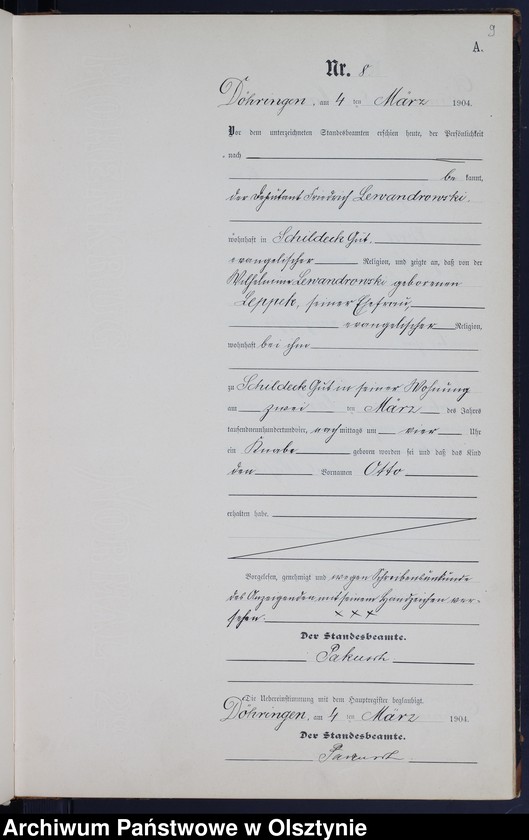 9
A.
Nr. 8
Döhringen, am 4 ten März 1904.
Vor dem unterzeichneten Standesbeamten erschien heute, der Persönlichkeit
nach
be kannt,
der Deputant Friedrich Lewandrowski.
wohnhaft in Schildeck Gut.
evangelischer Religion, und zeigte an, daß von der
Wilhelmine Lewandrowski geborenen
Leppek, seiner Ehefrau,
evangelischer Religion,
wohnhaft bei ihm
zu Schildeck Gut in seiner Wohnung
am zwei ten März des Jahres
tausendneunhundertundvier, nach mittags um vier Uhr
ein Knabe geboren worden sei und daß das Kind
den Vornamen Otto
erhalten habe.
Vorgelesen, genehmigt und wegen Schreibensunkunde
des Anzeigenden mit seinem Handzeichen ver-
sehen.
x x x
Der Standesbeamte.
Pakusch
Die Uebereinstimmung mit dem Hauptregister beglaubigt.
Döhringen, am 4 ten März 1904.
Der Standesbeamte.
Pakusch
Archiwum Państwowe w Olsztynie